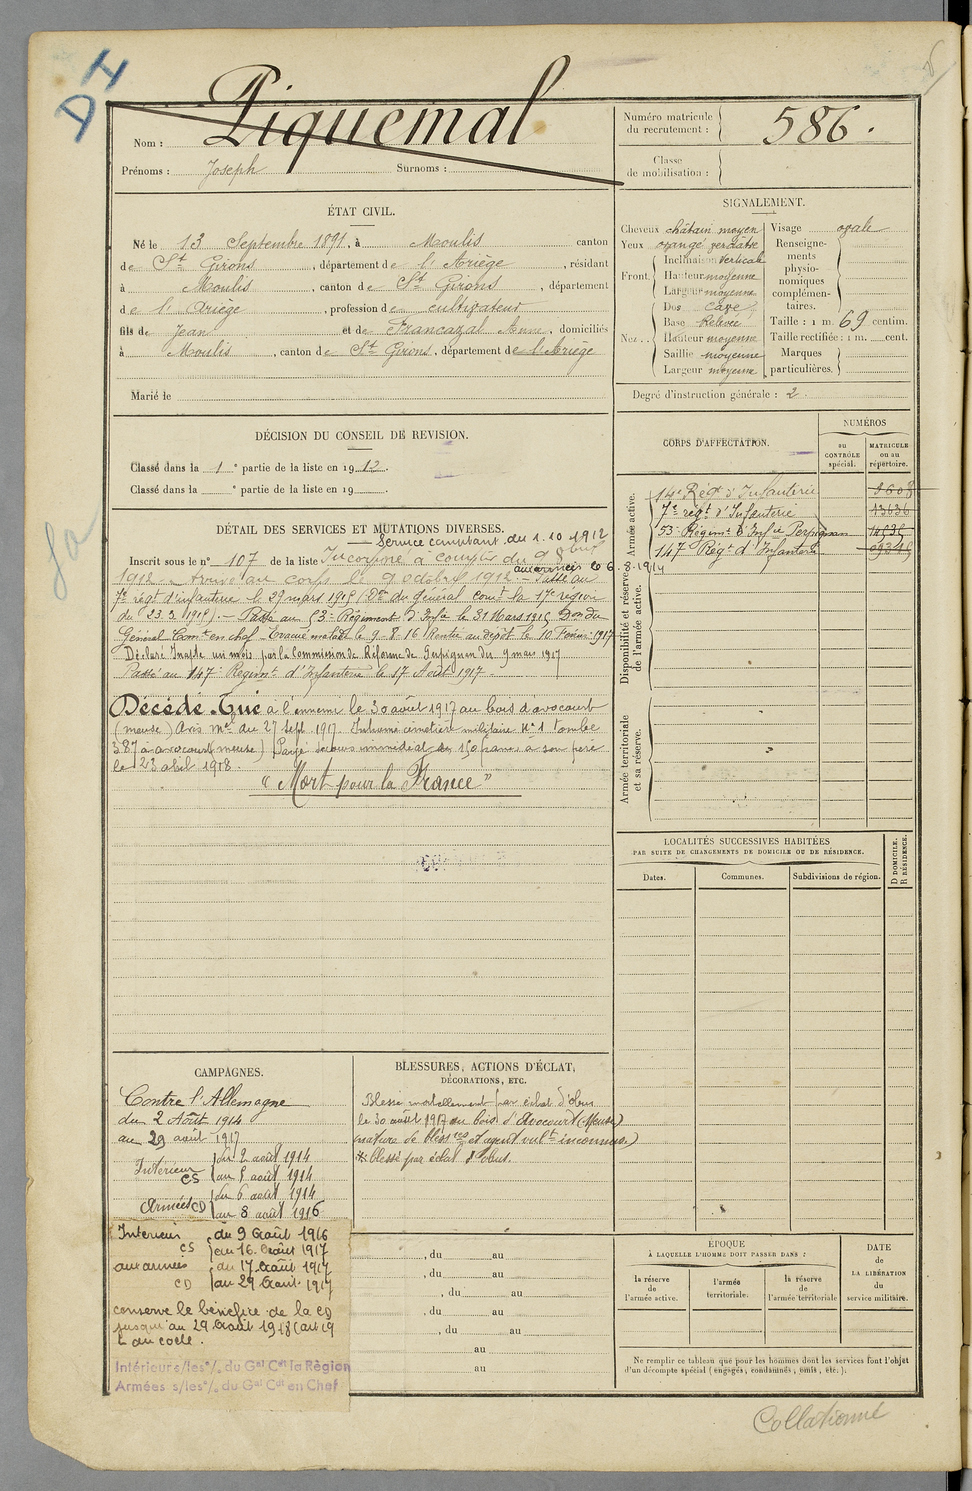 DH
Nom : Piquemal
Prénoms : Joseph Surnoms :
Numéro matricule du recrutement : 586.
Classe de mobilisation :
ÉTAT CIVIL.
Né le 13 Septembre 1891, à Moulis canton
de St Girons, département de l'Ariège, résidant
à Moulis, canton de St Girons, département
de l'Ariège, profession de cultivateur
fils de Jean et de Francazal Anne, domiciliés
à Moulis, canton de St Girons, département de l'Ariège
Marié le
SIGNALEMENT.
Cheveux châtain moyen
Yeux orangé verdâtre
Front. Inclinaison verticale
Hauteur moyenne
Largeur moyenne
Nez. Dos cave
Base Relevée
Hauteur moyenne
Saillie moyenne
Largeur moyenne
Visage ovale
Renseignements physionomiques complémentaires.
Taille : 1 m. 69 centim.
Taille rectifiée : 1 m. cent.
Marques particulières.
Degré d'instruction générale : 2
DÉCISION DU CONSEIL DE REVISION.
Classé dans la 1e partie de la liste en 1912.
Classé dans la e partie de la liste en 19 .
CORPS D'AFFECTATION.
NUMÉROS
au CONTRÔLE spécial.
MATRICULE ou au répertoire.
Armée active.
14e Régt d'Infanterie
7e régt d'Infanterie 13636
53e Régiment d'Infie Perpignan
147e Régt d'Infanterie
Disponibilité et réserve de l'armée active.
Armée territoriale et sa réserve.
DÉTAIL DES SERVICES ET MUTATIONS DIVERSES.
Service comptant du 1.10.1912
Inscrit sous le n° 107 de la liste Incorporé à compter du 9 8bre
aux armées le 6.8.1914
1912. Arrivé au corps le 9 octobre 1912. Passé au
7e régt d'infanterie le 29 mars 1915 (Don du Général comt la 17e région
du 23.3.1915). Passé au 53e Régiment d'Infie le 31 Mars 1915 Don du
Général Comt en chef. Evacué malade le 9-8-16 Rentré au dépôt le 10 Février 1917
Déclaré Inapte un mois par la Commission de Réforme de Perpignan du 9 mars 1917
Passé au 147e Régimt d'Infanterie le 17 Août 1917.
Décédé. Tué à l'ennemi le 30 août 1917 au bois d'avocourt
(meuse) Avis Mel du 27 Sept 1917. Inhumé cimetière militaire N° 1 tombe
387 à avocourt meuse) Payé secours immédiat de 150 francs à son père
le 23 abril 1918.
« Mort pour la France »
LOCALITÉS SUCCESSIVES HABITÉES
PAR SUITE DE CHANGEMENTS DE DOMICILE OU DE RÉSIDENCE.
Dates. Communes. Subdivisions de région. D DOMICILE. R RÉSIDENCE.
CAMPAGNES.
Contre l'Allemagne
du 2 Août 1914
au 29 août 1917
Intérieur CS du 2 août 1914
au 5 août 1914
Armées CD du 6 août 1914
au 8 août 1916
Intérieur CS du 9 Août 1916
au 16 Août 1917
aux armées CD du 17 Août 1917
au 29 Août 1917
conserve le bénéfice de la CD
jusqu'au 29 Août 1918 (art 19
du code.
Intérieur s/les °/. du Gal Cdt la Région
Armées s/les °/. du Gal Cdt en Chef
BLESSURES, ACTIONS D'ÉCLAT,
DÉCORATIONS, ETC.
Blessé mortellement par éclat d'obus
le 30 août 1917 au bois d'Avocourt (Meuse)
(nature de blessres et agent vult inconnus.)
blessé par éclat d'obus.
, du au
, du au
, du au
, du au
, du au
au
au
ÉPOQUE
À LAQUELLE L'HOMME DOIT PASSER DANS :
la réserve de l'armée active. l'armée territoriale. la réserve de l'armée territoriale
DATE de LA LIBÉRATION du service militaire.
Ne remplir ce tableau que pour les hommes dont les services font l'objet
d'un décompte spécial (engagés, condamnés, omis, etc.).
Collationné